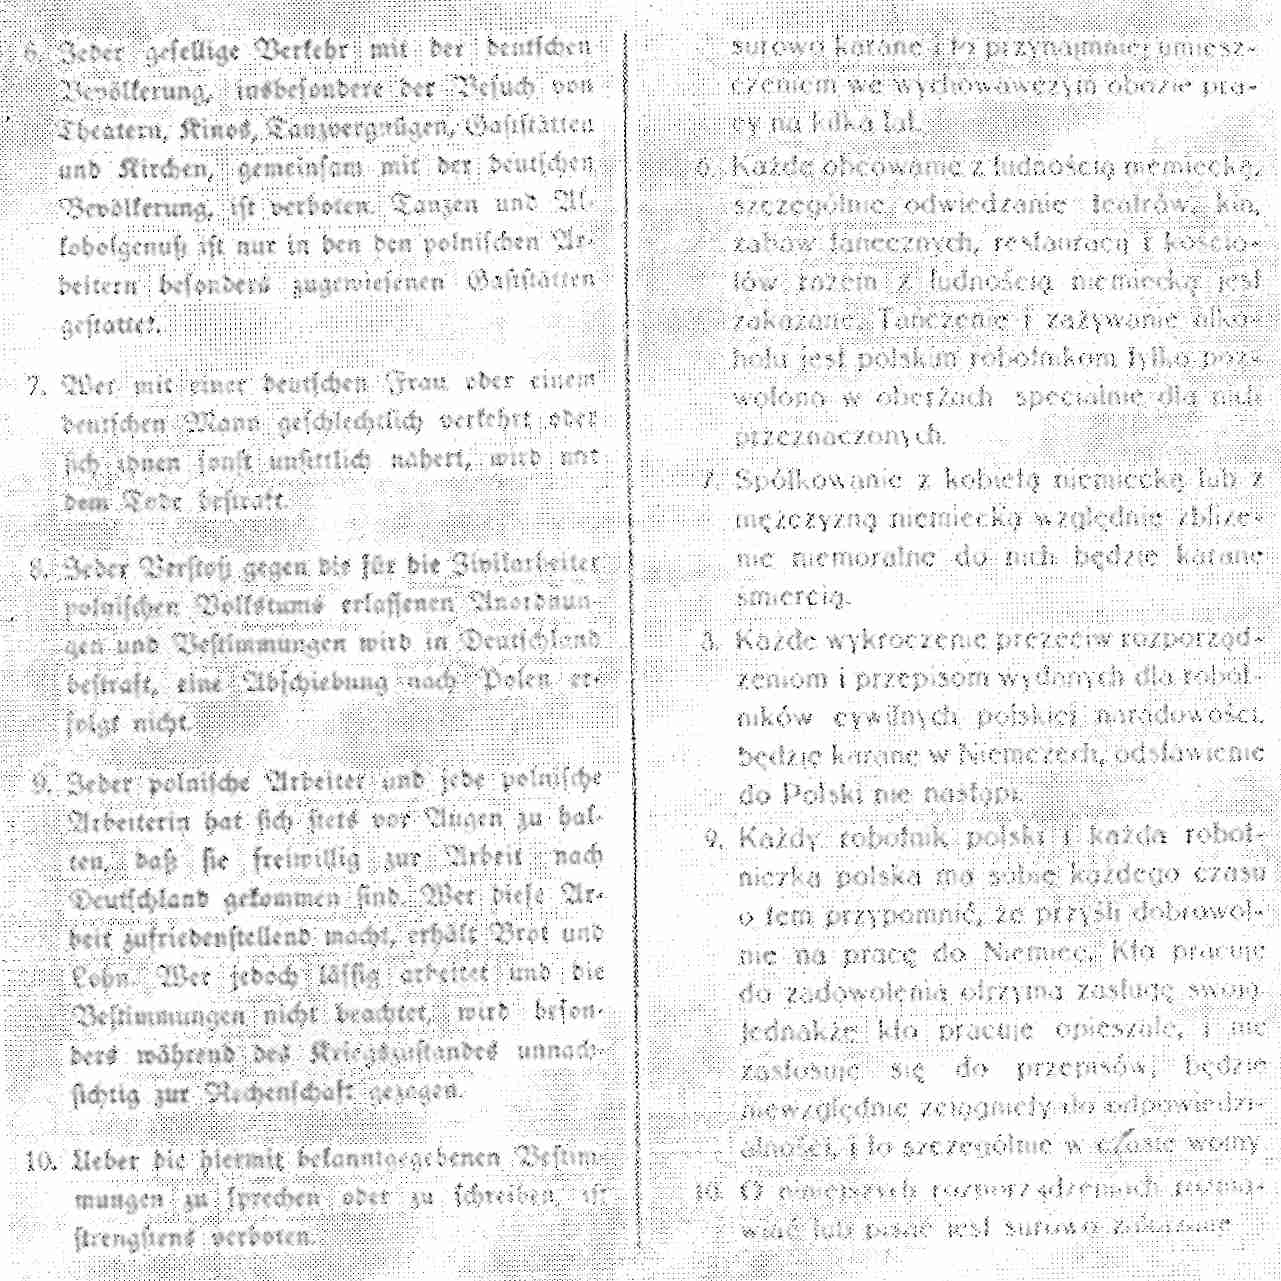 6. Jeder gesellige Verkehr mit der deutschen
Bevölkerung, insbesondere der Besuch von
Theatern, Kinos, Tanzvergnügen, Gaststätten
und Kirchen, gemeinsam mit der deutschen
Bevölkerung, ist verboten. Tanzen und Al-
koholgenuß ist nur in den den polnischen Ar-
beitern besonders zugewiesenen Gaststätten
gestattet.
7. Wer mit einer deutschen Frau oder einem
deutschen Mann geschlechtlich verkehrt oder
sich ihnen sonst unsittlich nähert, wird mit
dem Tode bestraft.
8. Jeder Verstoß gegen die für die Zivilarbeiter
polnischen Volkstums erlassenen Anordnun-
gen und Bestimmungen wird in Deutschland
bestraft, eine Abschiebung nach Polen er-
folgt nicht.
9. Jeder polnische Arbeiter und jede polnische
Arbeiterin hat sich stets vor Augen zu hal-
ten, daß sie freiwillig zur Arbeit nach
Deutschland gekommen sind. Wer diese Ar-
beit zufriedenstellend macht, erhält Brot und
Lohn. Wer jedoch lässig arbeitet und die
Bestimmungen nicht beachtet, wird beson-
ders während des Kriegszustandes unnach-
sichtig zur Rechenschaft gezogen.
10. Ueber die hiermit bekanntgegebenen Bestim-
mungen zu sprechen oder zu schreiben, ist
strengstens verboten.
surowo karane i to przynajmniej umiesz-
czeniem we wychowawczym obozie pra-
cy na kilka lat.
6. Każde obcowanie z ludnością niemiecką,
szczególnie odwiedzanie teatrów, kin,
zabaw tanecznych, restauracji i kościo-
łów razem z ludnością niemiecką jest
zakazane. Tańczenie i zażywanie alko-
holu jest polskim robotnikom tylko poz-
wolono w oberżach specjalnie dla nich
przeznaczonych.
7. Spółkowanie z kobietą niemiecką lub z
mężczyzną niemiecką względnie zbliże-
nie niemoralne do nich będzie karane
śmiercią.
8. Każde wykroczenie przeciw rozporząd-
zeniom i przepisom wydanych dla robot-
ników cywilnych polskiej narodowości,
będzie karane w Niemczech, odstawienie
do Polski nie nastąpi.
9. Każdy robotnik polski i każda robot-
niczka polska ma sobie każdego czasu
o tem przypomnić, że przyśli dobrowol-
nie na pracę do Niemiec. Kto pracuje
do zadowolenia otrzyma zasługę swoją.
Jednakże kto pracuje opieszale, i nie
zastosuje się do przepisów, będzie
niewzględnie zciągniety do odpowiedzi-
alności, i to szczególnie w czasie wojny
10. O niniejszych rozporządzeniach rozma-
wiać lub pisać jest surowo zakazane